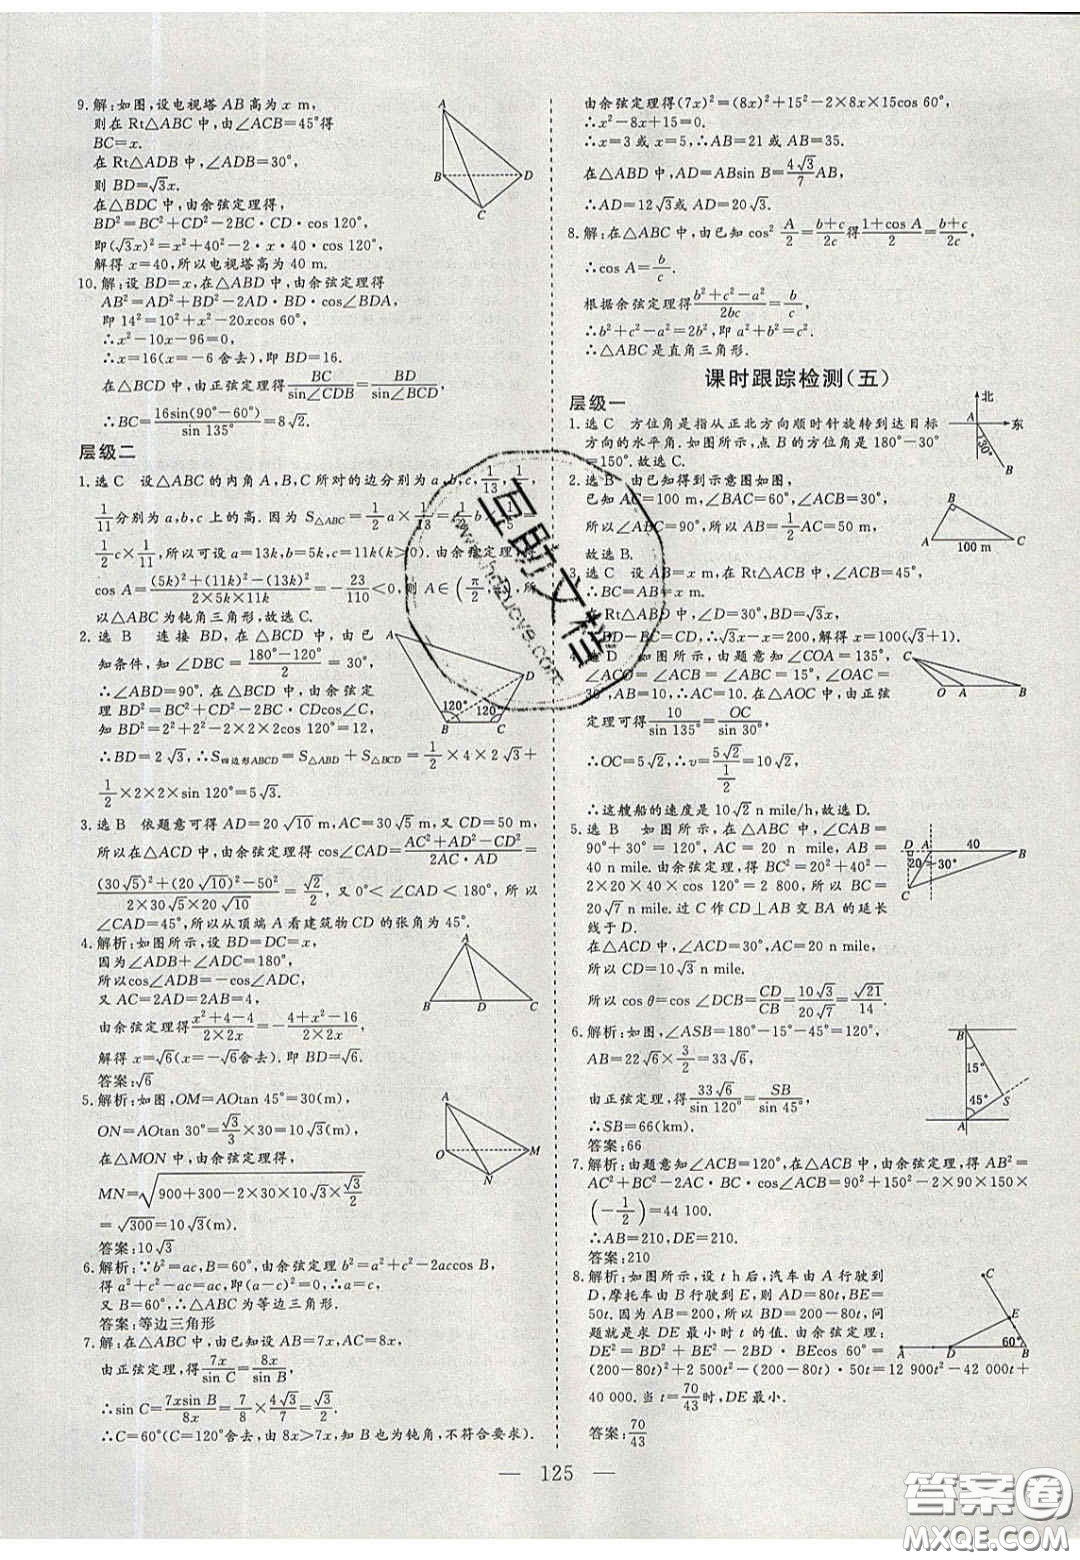 9.解:如图,设电视塔AB高为x m,
则在Rt△ABC中,由∠ACB=45°得
BC=x.
在Rt△ADB中,∠ADB=30°,
则BD=√3x.
在△BDC中,由余弦定理得,
BD²=BC²+CD²-2BC·CD·cos 120°,
即(√3x)²=x²+40²-2·x·40·cos 120°,
解得x=40,所以电视塔高为40 m.
10.解:设BD=x,在△ABD中,由余弦定理得
AB²=AD²+BD²-2AD·BD·cos∠BDA,
即14²=10²+x²-20xcos 60°,
∴x²-10x-96=0,
∴x=16(x=-6舍去),即BD=16.
在△BCD中,由正弦定理得BC/sin∠CDB=BD/sin∠BCD,
∴BC=16sin(90°-60°)/sin 135°=8√2.
层级二
1.选C 设△ABC的内角A,B,C所对的边分别为a,b,c,1/13,1/5,
1/11分别为a,b,c上的高.因为S△ABC=1/2a×1/13=1/2b×1/5=
1/2c×1/11,所以可设a=13k,b=5k,c=11k(k>0).由余弦定理,得
cos A=((5k)²+(11k)²-(13k)²)/(2×5k×11k)=-23/110<0,则A∈(π/2,π),所
以△ABC为钝角三角形,故选C.
2.选B 连接BD,在△BCD中,由已
知条件,知∠DBC=(180°-120°)/2=30°,
∴∠ABD=90°.在△BCD中,由余弦定
理BD²=BC²+CD²-2BC·CDcos∠C,
知BD²=2²+2²-2×2×2cos 120°=12,
∴BD=2√3,∴S四边形ABCD=S△ABD+S△BCD=1/2×4×2√3+
1/2×2×2×sin 120°=5√3.
3.选B 依题意可得AD=20√10 m,AC=30√5 m,又CD=50 m,
所以在△ACD中,由余弦定理得cos∠CAD=(AC²+AD²-CD²)/(2AC·AD)=
((30√5)²+(20√10)²-50²)/(2×30√5×20√10)=√2/2,又0°<∠CAD<180°,所以
∠CAD=45°,所以从顶端A看建筑物CD的张角为45°.
4.解析:如图所示,设BD=DC=x,
因为∠ADB+∠ADC=180°,
所以cos∠ADB=-cos∠ADC,
又AC=2AD=2AB=4,
由余弦定理得(x²+4-4)/(2×2x)=-(4+x²-16)/(2×2x),
解得x=√6(x=-√6舍去).即BD=√6.
答案:√6
5.解析:如图,OM=AOtan 45°=30(m),
ON=AOtan 30°=√3/3×30=10√3(m),
在△MON中,由余弦定理得,
MN=√(900+300-2×30×10√3×√3/2)
=√300=10√3(m).
答案:10√3
6.解析:∵b²=ac,B=60°,由余弦定理b²=a²+c²-2accos B,
得a²+c²-ac=ac,即(a-c)²=0,∴a=c,
又B=60°,∴△ABC为等边三角形.
答案:等边三角形
7.解:在△ABC中,由已知设AB=7x,AC=8x,
由正弦定理,得7x/sin C=8x/sin B,
∴sin C=7xsin B/8x=7/8×4√3/7=√3/2.
∴C=60°(C=120°舍去,由8x>7x,知B也为钝角,不符合要求).
由余弦定理得(7x)²=(8x)²+15²-2×8x×15cos 60°,
∴x²-8x+15=0.
∴x=3或x=5,∴AB=21或AB=35.
在△ABD中,AD=ABsin B=4√3/7AB,
∴AD=12√3或AD=20√3.
8.解:在△ABC中,由已知cos²A/2=(b+c)/2c得(1+cos A)/2=(b+c)/2c,
∴cos A=b/c.
根据余弦定理得(b²+c²-a²)/2bc=b/c.
∴b²+c²-a²=2b²,即a²+b²=c².
∴△ABC是直角三角形.
课时跟踪检测(五)
层级一
1.选C 方位角是指从正北方向顺时针旋转到达目标
方向的水平角.如图所示,点B的方位角是180°-30°
=150°.故选C.
2.选B 由已知得到示意图如图,
已知AC=100 m,∠BAC=60°,∠BCA=30°,
所以∠ABC=90°,所以AB=1/2AC=50 m,
故选B.
3.选C 设AB=x m,在Rt△ACB中,∠ACB=45°,
∴BC=AB=x m.
在Rt△ABD中,∠D=30°,∴BD=√3x,
∵BD-BC=CD,∴√3x-x=200,解得x=100(√3+1).
4.选D 如图所示,由题意知∠COA=135°,
∠ACO=∠ACB-∠BCO=15°,∠OAC=
30°,AO=10 n mile.在△AOC中,由正弦
定理可得10/sin 15°=OC/sin 30°,
∴OC=5√2/sin 15°
∴这艘船的速度是10√2 n mile/h,故选D.
5.选B 如图所示,在△ABC中,∠CAB=
90°+30°=120°,AC=20 n mile,AB=
40 n mile.由余弦定理,得BC²=20²+40²-
2×20×40×cos 120°=2 800,所以BC=
20√7 n mile.过C作CD⊥AB交BA的延长
线于D.
在△ACD中,∠ACD=30°,AC=20 n mile,
所以CD=10√3 n mile.
所以cos θ=cos∠DCB=CD/CB=10√3/20√7=√21/14.
6.解析:如图,∠ASB=180°-15°-45°=120°,
AB=22√6×3/2=33√6,
由正弦定理,得33√6/sin 120°=SB/sin 45°,
∴SB=66(km).
答案:66
7.解析:由题意知∠ACB=120°,在△ACB中,由余弦定理,得AB²=
AC²+BC²-2AC·BC·cos∠ACB=90²+150²-2×90×150×
(-1/2)=44 100.
∴AB=210,DE=210.
答案:210
8.解析:如图所示,设t h后,汽车由A行驶到
D,摩托车由B行驶到E,则AD=80t,BE=
50t.因为AB=200,所以BD=200-80t,问
题就是求DE最小时t的值.由余弦定理得:
DE²=BD²+BE²-2BD·BEcos 60°=
(200-80t)²+2 500t²-(200-80t)·50t=12 900t²-42 000t+
40 000.当t=70/43时,DE最小.
答案:70/43
— 125 —
互助文档
答案圈
MXQE.COM